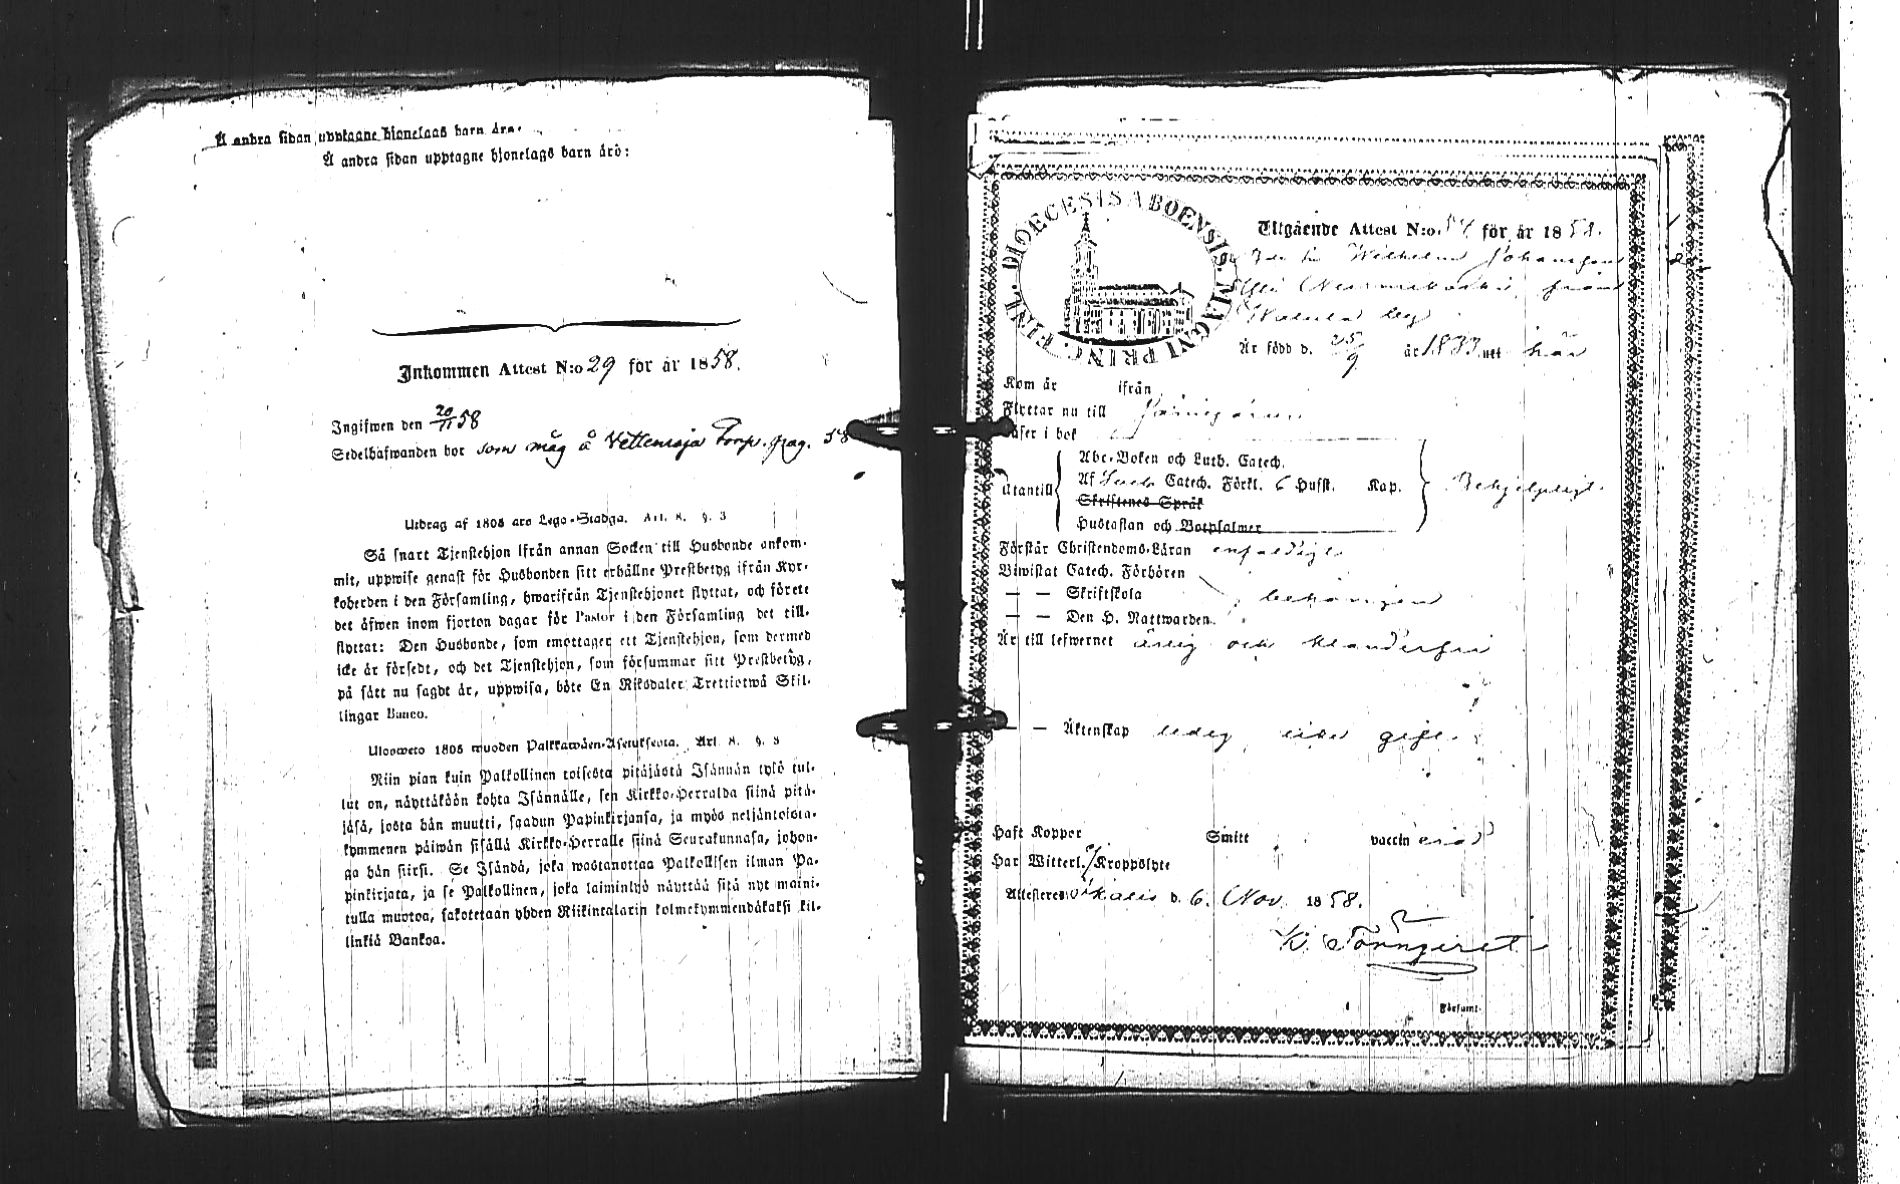 Å andra sidan upptagne hjonelags barn äro:
Å andra sidan upptagne hjonelags barn äro:
Inkommen Attest N:o 29 för år 1858.
Ingifwen den 20/11 58
Sedelhafwanden bor som måg å Vettenoja Torp. pag. 58
Utdrag af 1805 års Lego-Stadga. Art. 8. §. 3
Så snart Tjenstehjon ifrån annan Socken till Husbonde ankom-
mit, uppwise genast för Husbonden sitt erhållne Prestbetyg ifrån Kyr-
koherden i den Församling, hwarifrån Tjenstehjonet flyttat, och förete
det äfwen inom fjorton dagar för Pastor i den Församling det till-
flyttat: Den Husbonde, som emottager ett Tjenstehjon, som dermed
icke är försedt, och det Tjenstehjon, som försummar sitt Prestbetyg,
på sätt nu sagdt är, uppwisa, böte En Riksdaler Trettiotwå Skil-
lingar Banco.
Ulosweto 1805 wuoden Palkkawäen-Asetuksesta. Art. 8. §. 3
Niin pian kuin Palkollinen toisesta pitäjästä Isännän tykö tul-
lut on, näyttäköön kohta Isännälle, sen Kirkko-Herralda siinä pitä-
jäsä, josta hän muutti, saadun Papinkirjansa, ja myös neljäntoista-
kymmenen päiwän sisällä Kirkko-Herralle siinä Seurakunnasa, johon-
ga hän siirsi. Se Isändä, joka wastanottaa Palkollisen ilman Pa-
pinkirjata, ja se Palkollinen, joka laiminlyö näyttää sitä nyt maini-
tulla muotoa, sakotetaan yhden Riikintalarin kolmekymmendäkaksi kil-
linkiä Bankoa.
DIOECESIS ABOENSIS. MAGNI PRINC. FINL.
Utgående Attest N:o 54 för år 1858.
Wilhelm Johansson
från
by
Är född d. 25/9 år 1833 uti här
Kom år ifrån
Flyttar nu till
Läser i bok
Utantill
Abc-Boken och Luth. Catech.
Af Catech. Förkl. 6 Hufst. Kap. Behjelpligt.
Skriftenes Språk
Hustaflan och Botpsalmer
Förstår Christendoms-Läran enfaldigt
Biwistat Catech. Förhören
— — Skriftskola behörigen
— — Den H. Nattwarden
Är till lefwernet ärlig och klanderfri
— — Äktenskap ledig
Haft Koppor Smitt vaccin
Har Witterl. Kroppslyte
Attesteres Ikalis d. 6. Nov. 1858.
Församl.